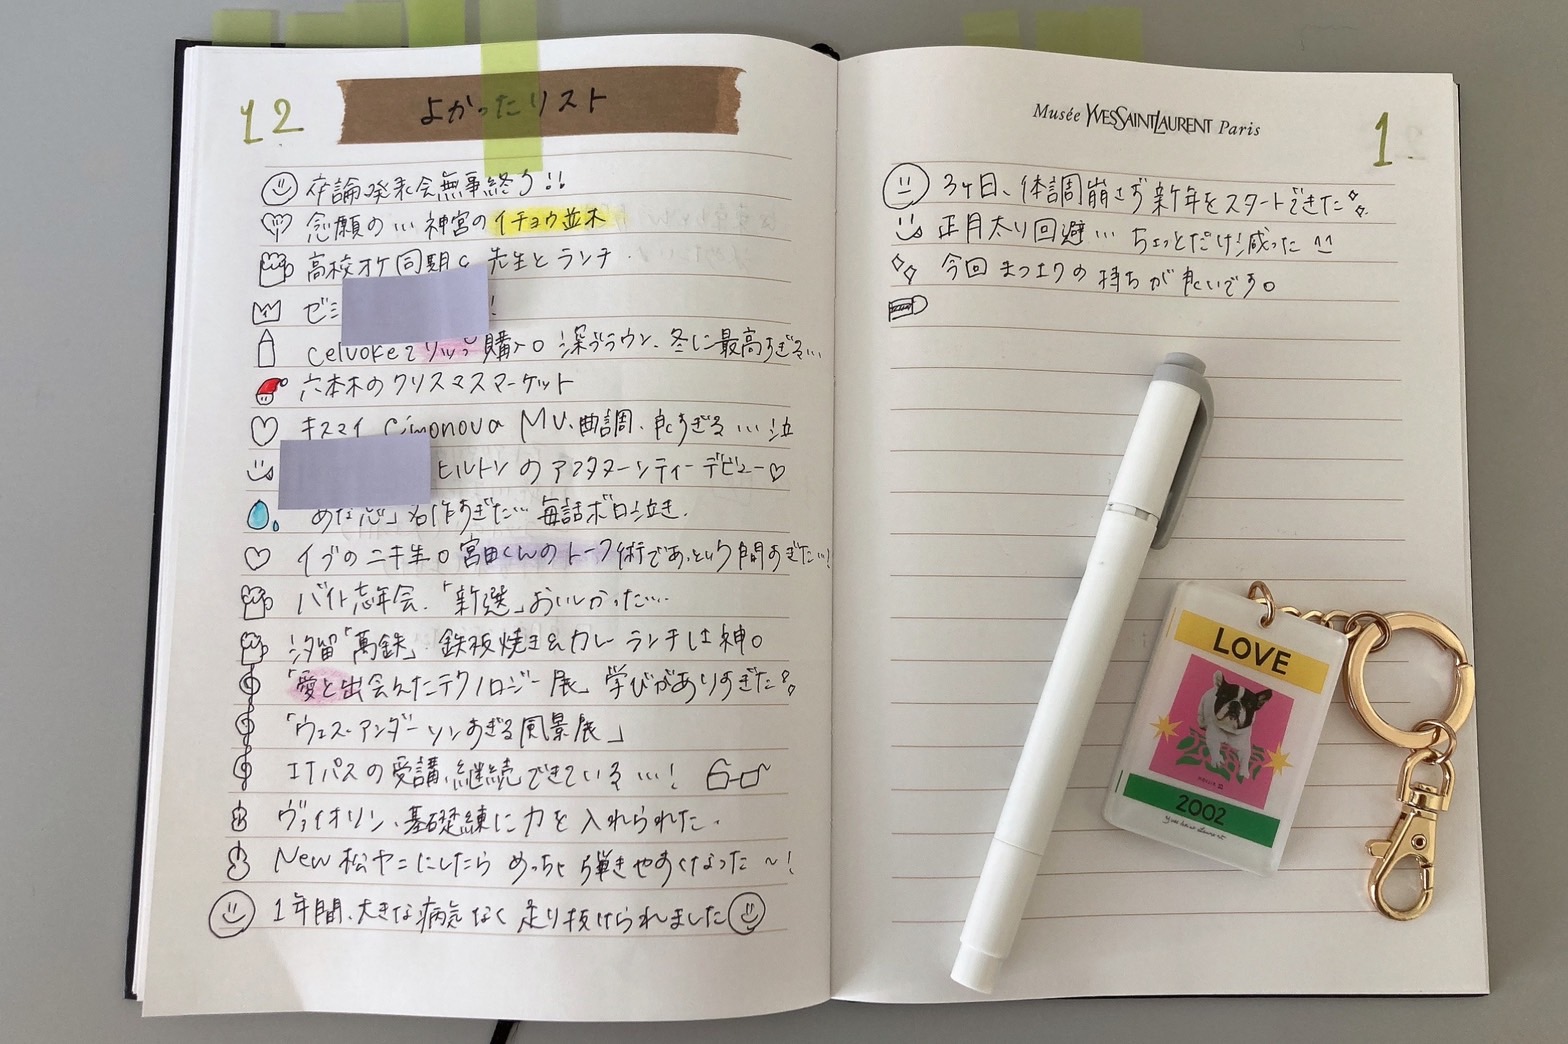 12
よかったリスト
卒論発表会無事終り!!
念願の… 神宮のイチョウ並木
高校オケ同期と先生とランチ.
ゼミ !
celvokeでリップ購入。深ブラウン、冬に最高すぎる…
六本木のクリスマスマーケット
キスマイ Cinonova MV、曲調、良すぎる…泣
ヒルトンのアフタヌーンティーデビュー♡
「あな恋」名作すぎた… 毎話ボロ泣き.
イブのニキ生。宮田くんのトーク術であっという間すぎた…!
バイト忘年会.「新選」おいしかった….
汐留「萬鉄」鉄板焼き&カレーランチしは神。
「愛と出会えたテクノロジー展」学びがありすぎた
「ウェス・アンダーソンすぎる風景展」
ITパスの受講、継続できている…!
ヴァイオリン、基礎練に力を入れられた.
New松ヤニにしたらめっちゃ弾きやすくなった〜!
1年間、大きな病気なく走り抜けられました
Musée YVESSAINTLAURENT Paris
1.
3ヶ日、体調崩さず新年をスタートできた
正月太り回避… ちょっとだけ減った
今回まつエクの持ちが良いです。
LOVE
2002